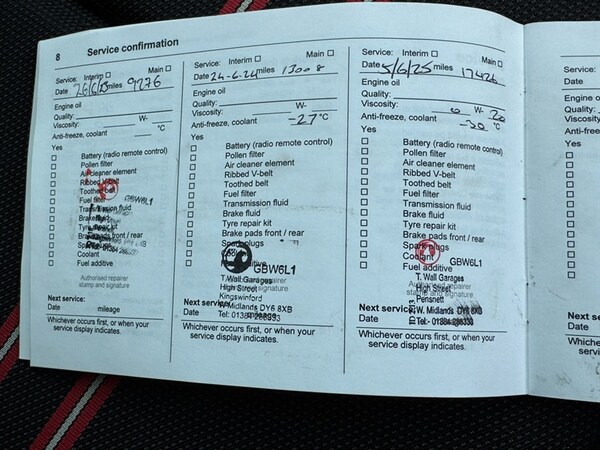 8 Service confirmation
Service: Interim Main
Date 26/6/23 miles 9276
Engine oil
Quality:
Viscosity: W-
Anti-freeze, coolant °C
Yes
Battery (radio remote control)
Pollen filter
Air cleaner element
Ribbed V-belt
Toothed belt
Fuel filter
GBW6L1
Transmission fluid
Brake fluid
Tyre repair kit
Brake pads front / rear
Spark plugs
Coolant
Fuel additive
Authorised repairer
stamp and signature
Next service:
Date mileage
Whichever occurs first, or when your
service display indicates.
Service: Interim Main
Date 24-6-24 miles 13008
Engine oil
Quality:
Viscosity: W-
Anti-freeze, coolant -27 °C
Yes
Battery (radio remote control)
Pollen filter
Air cleaner element
Ribbed V-belt
Toothed belt
Fuel filter
Transmission fluid
Brake fluid
Tyre repair kit
Brake pads front / rear
Spark plugs
GBW6L1
T. Wall Garages
High Street
Kingswinford
W. Midlands DY6 8XB
Next service:
Date
Whichever occurs first, or when your
service display indicates.
Service: Interim Main
Date 5/6/25 miles 17426
Engine oil
Quality:
Viscosity: 0 W- 20
Anti-freeze, coolant -30 °C
Yes
Battery (radio remote control)
Pollen filter
Air cleaner element
Ribbed V-belt
Toothed belt
Fuel filter
Transmission fluid
Brake fluid
Tyre repair kit
Brake pads front / rear
Spark plugs
Coolant
GBW6L1
Fuel additive
T. Wall Garages
Authorised repairer
stamp and signature
High Street
Pensnett
Next service:
W. Midlands
Date
Whichever occurs first, or when your
service display indicates.
Service:
Date
Engine o
Quality:
Viscosity
Anti-free
Yes
Next se
Date
Whichev
servi